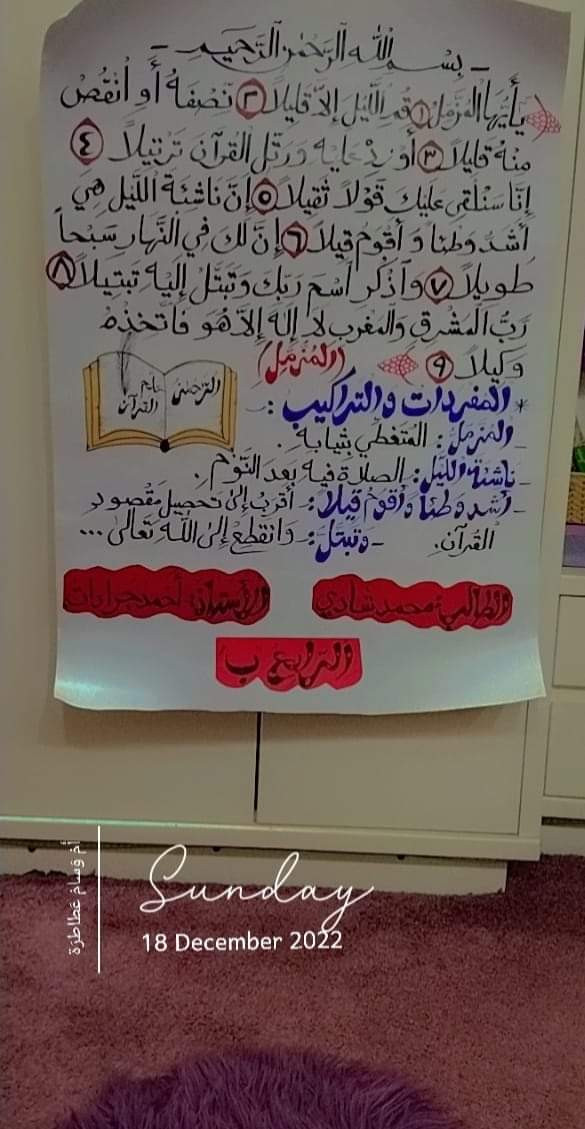 - بسم الله الرحمن الرحيم -
يأيها المزمل ١ قم الليل إلا قليلا ٢ نصفه أو انقص
منه قليلا ٣ أو زد عليه ورتل القرآن ترتيلا ٤
إنا سنلقي عليك قولا ثقيلا ٥ إن ناشئة الليل هي
أشد وطئا وأقوم قيلا ٦ إن لك في النهار سبحا
طويلا ٧ واذكر اسم ربك وتبتل إليه تبتيلا ٨
رب المشرق والمغرب لا إله إلا هو فاتخذه
وكيلا ٩ (المزمل)
الرحمن علم القرآن
* المفردات والتراكيب :-
- المزمل : المتغطي بثيابه .
- ناشئة الليل : الصلاة فيه بعد النوم .
- أشد وطئا وأقوم قيلا : أقرب إلى تحصيل مقصود
القرآن. - وتبتل : وانقطع إلى الله تعالى ...
الطالب : محمد شادي الأستاذ : أحمد جرايات
الرابع ب
أم وسام غطاطزة
Sunday
18 December 2022